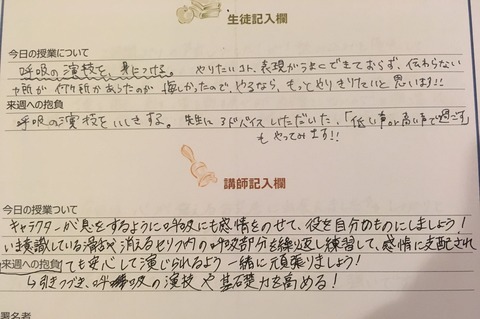 生徒記入欄
今日の授業について
呼吸の演技を、身につける。 やりたいコト、表現がうまくできておらず、伝わらない
か所があったのが悔しかったので、やるなら、もっとやりきりたいと思います!!
来週への抱負
呼吸の演技をいしきする。先生にアドバイスいただいた、「低い声or高い声で過ごす」
もやってみます!!
講師記入欄
今日の授業について
キャラクターが息をするように呼吸にも感情をのせて、役を自分のものにしましょう!
いま意識している滑舌や消えるセリフ内の呼吸部分を繰り返し練習して、感情に支配され
来週への抱負 ても安心して演じられるよう一緒に頑張りましょう!
引きつづき、呼吸の演技や基礎力を高める!
署名者